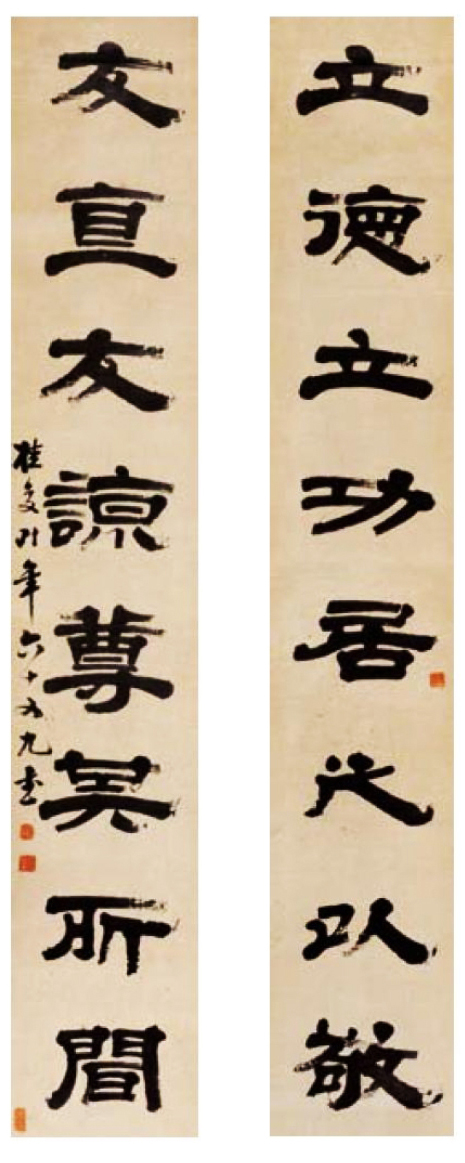 立德立功居之以敬
友直友諒尊其所聞
桂馥時年六十有九書